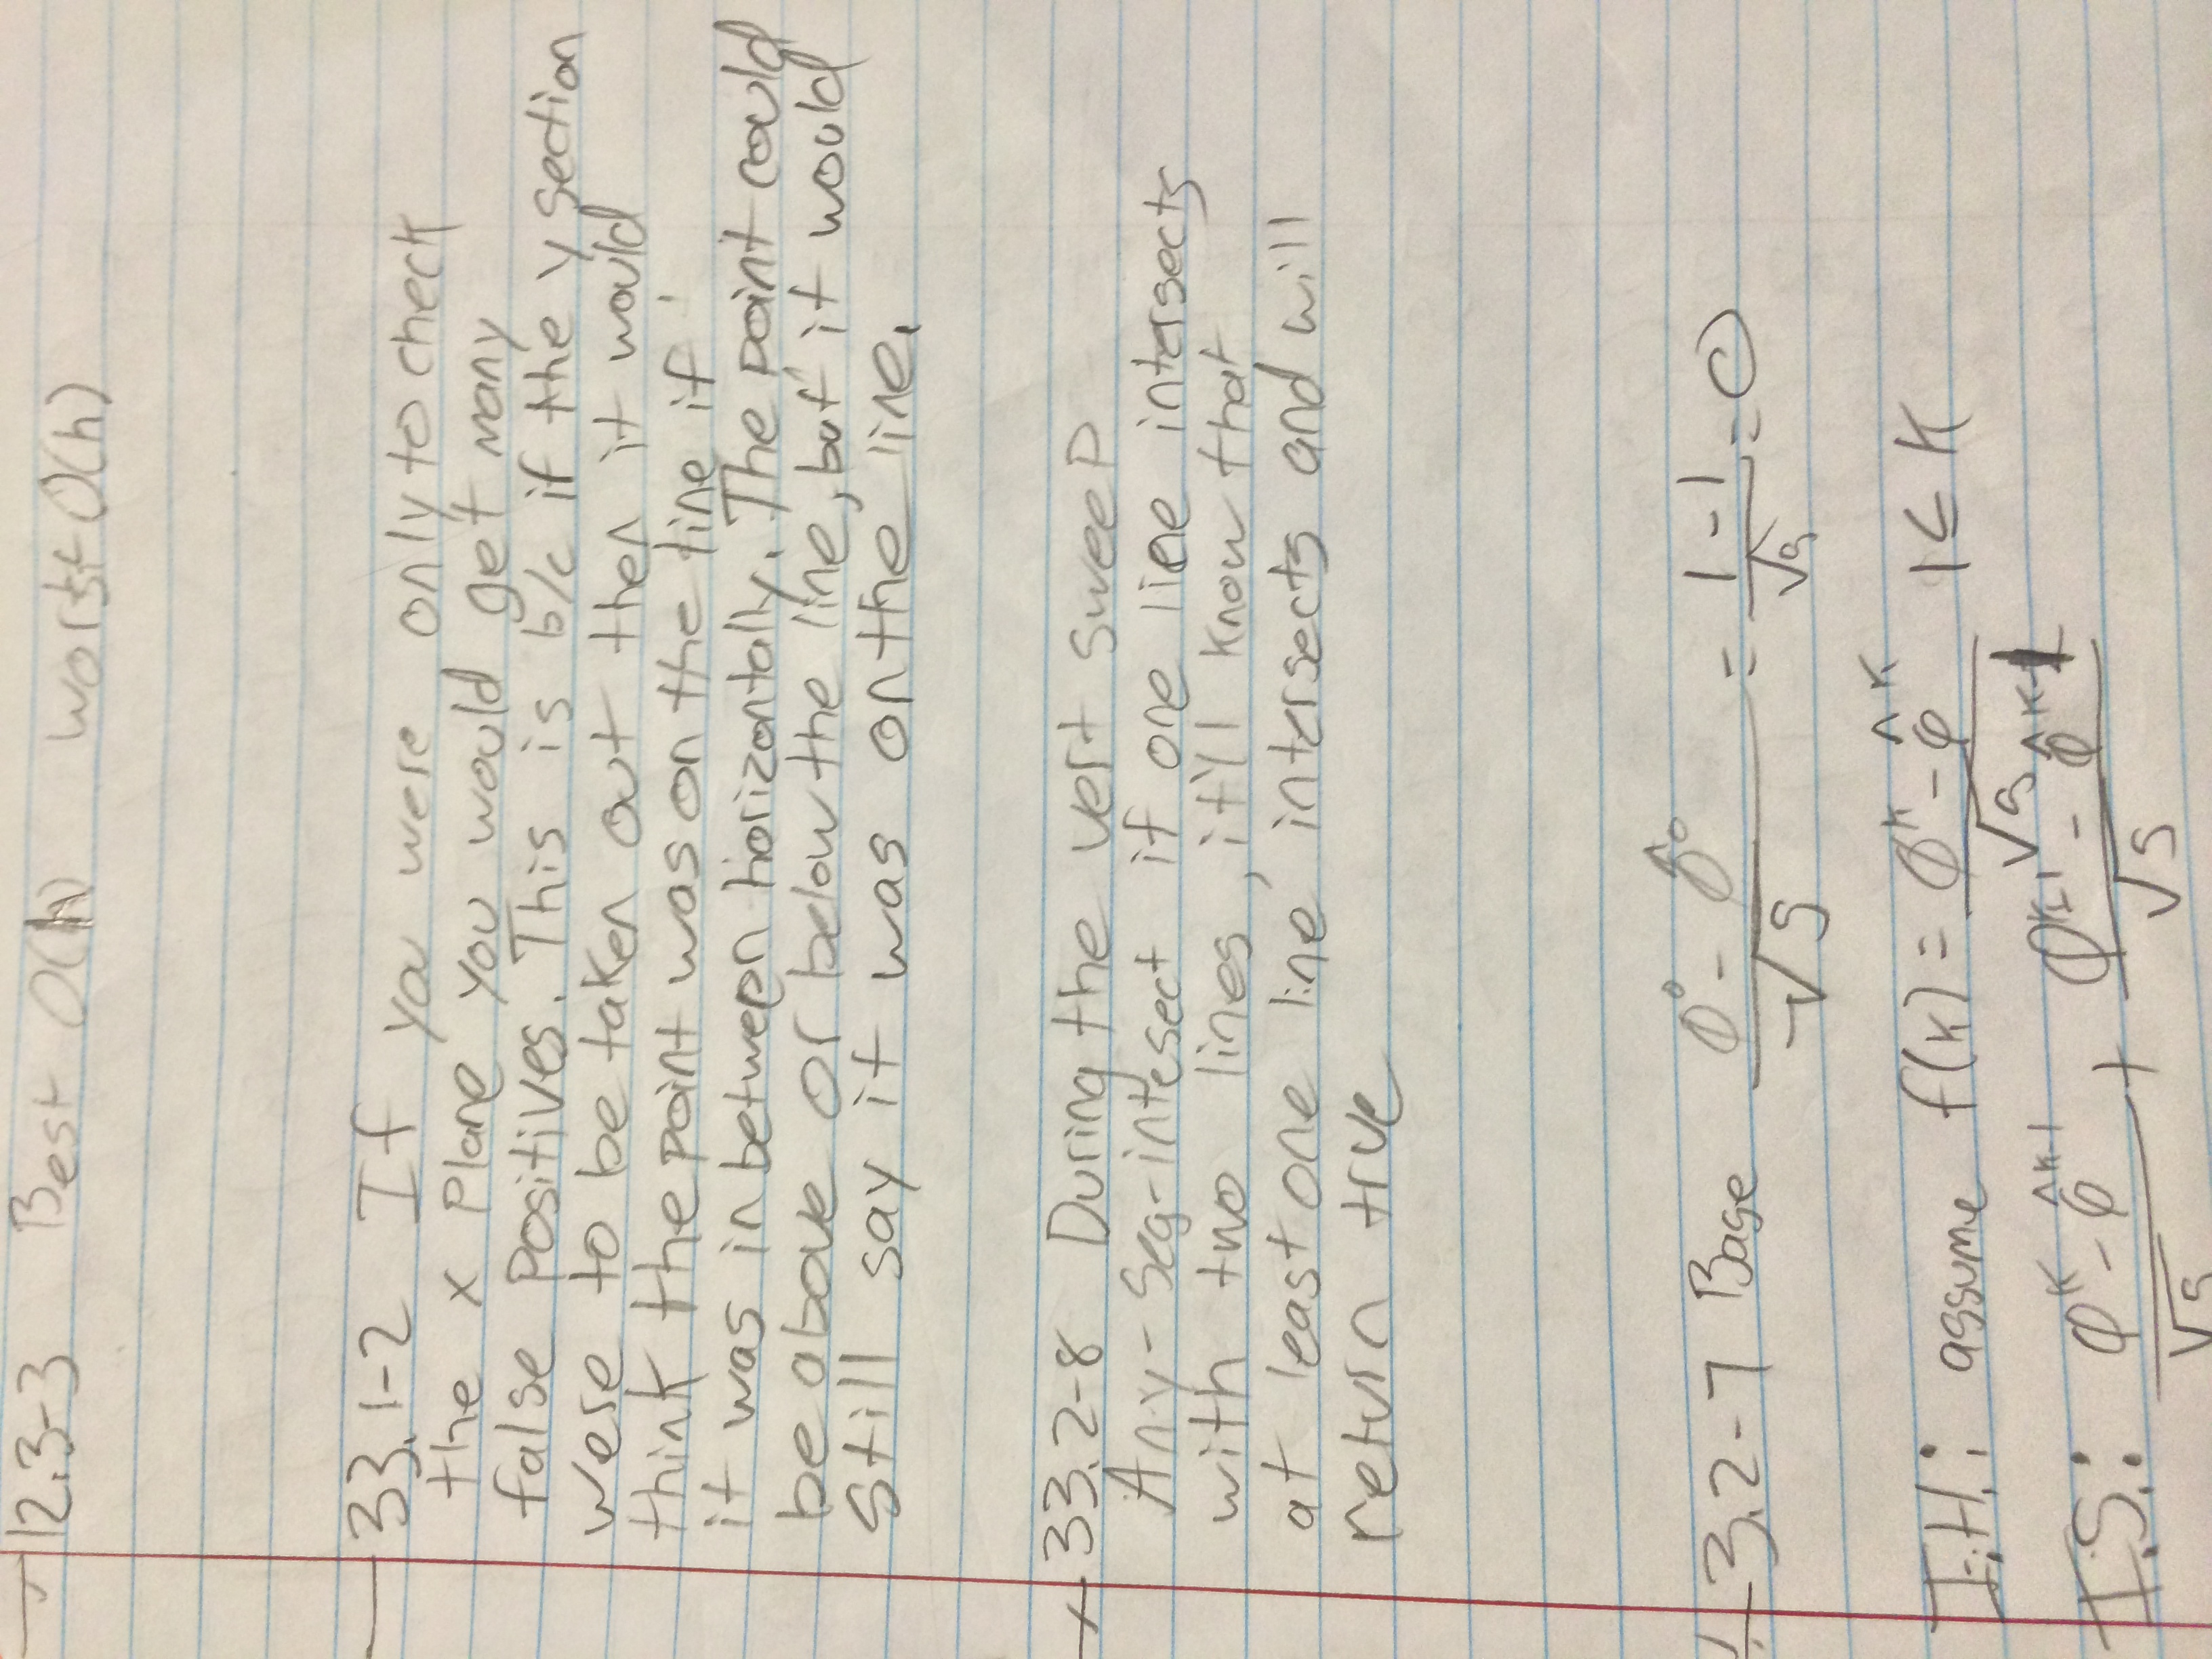 12.3-3 Best O(h) worst O(h)
33.1-2 If you were only to check
the x plane you would get many
false positives. This is b/c if the y section
were to be taken out then it would
think the point was on the line if
it was in between horizontally. The point could
be above or below the line, but it would
still say it was on the line.
33.2-8 During the vert sweep
Any-Seg-intesect if one line intersects
with two lines, it'll know that
at least one line intersects and will
return true
3.2-7 Base (φ⁰ - φ̂⁰)/√5 = (1-1)/√5 = 0
I.H.: assume f(k) = (φᵏ - φ̂ᵏ)/√5 1 ≤ K
I.S.: (φᵏ - φ̂ᵏ⁻¹)/√5 + (φᵏ⁻¹ - φ̂ᵏ⁻¹)/√5